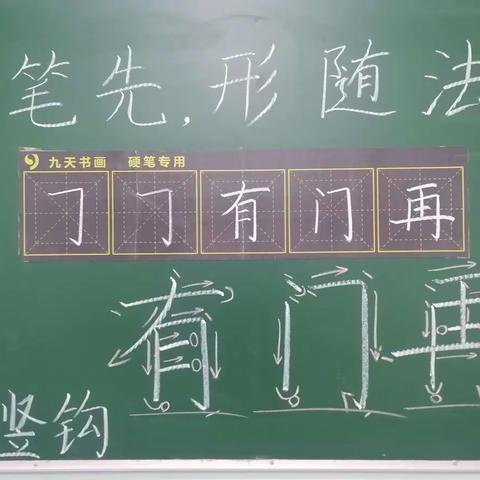 笔先，形随法
九天书画 硬笔专用
𠃌 𠃌 有 门 再
有 门 再
竖钩